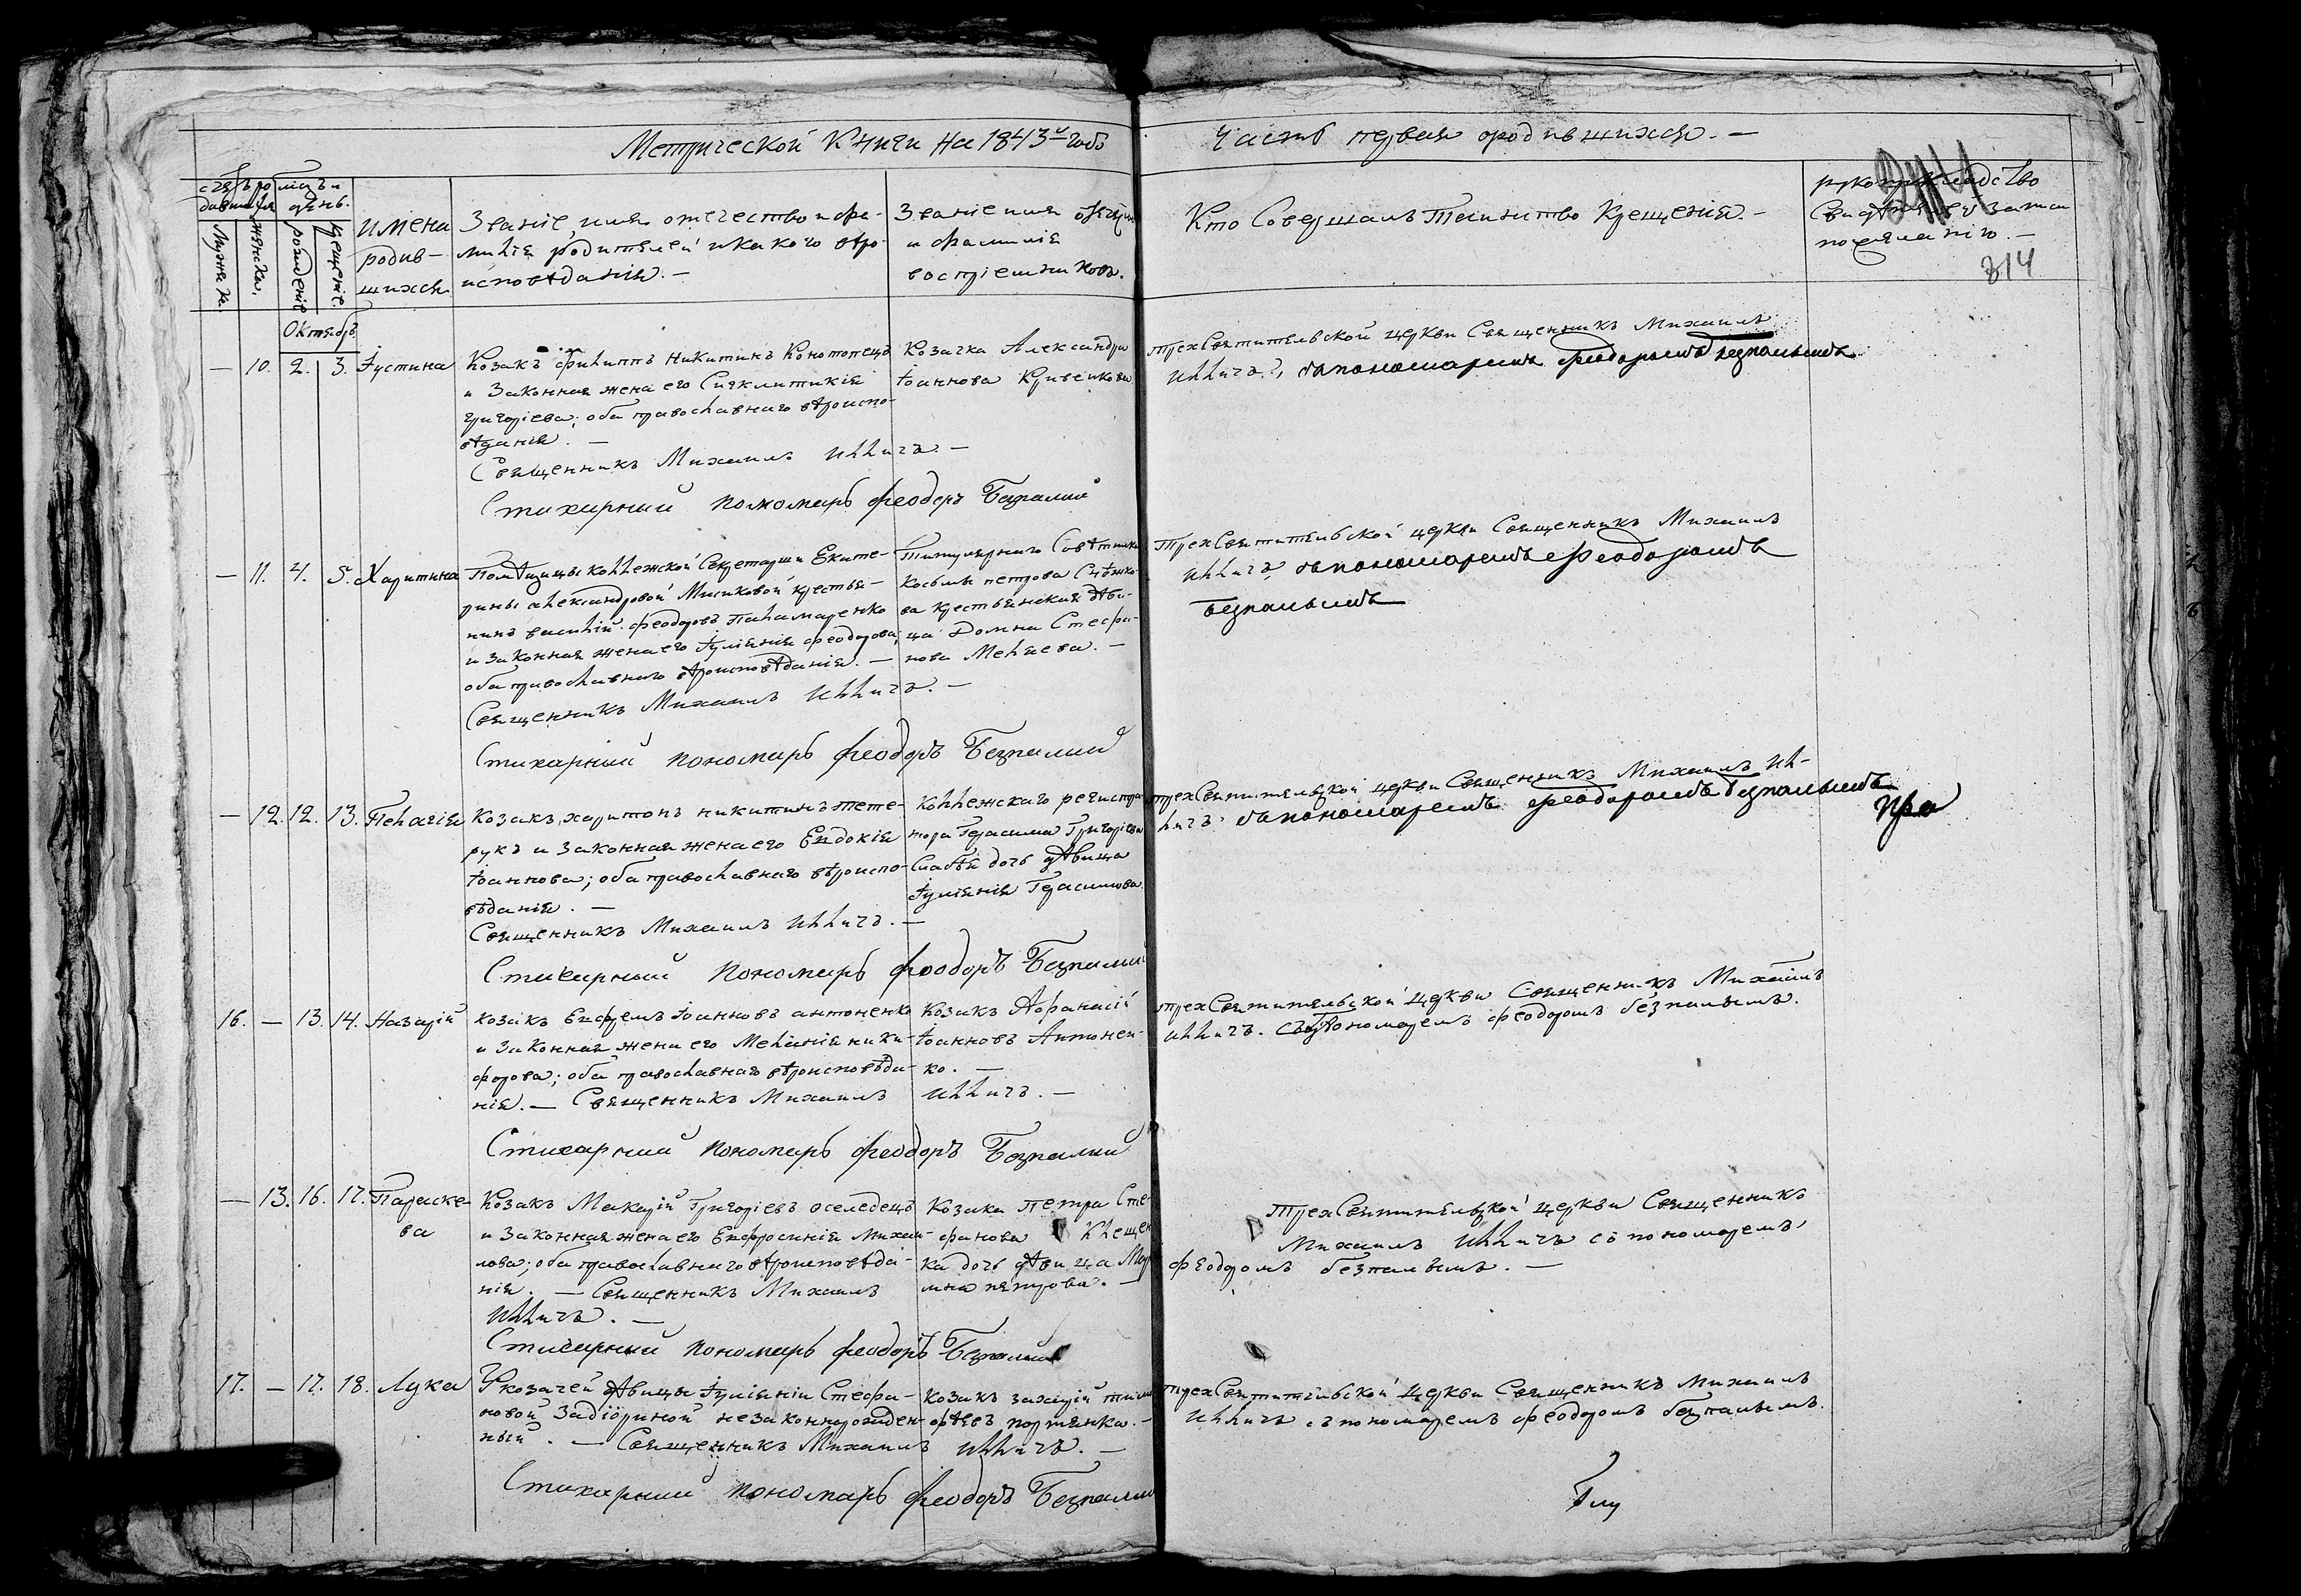 Метрической Книги на 1843й годъ
Часть первая о родившихся. —
счетъ родившихся
мѣсяцъ и день.
Мужеск.
женска.
рожденіе
крещеніе.
имена родив-
шихся
Званіе, имя отечество и фа-
милія родителей и какого вѣро-
исповѣданія. —
Званіе имя отечество
и фамилія
воспріемниковъ.
Кто Совершалъ Таинство Крещенія. —
рукоприкладство
Свидѣтелей записи
по желанію. —
814
Октябрь
— 10. 2. 3. Іустина
Козакъ Филиппъ Никитинъ Конотопецъ
и Законная жена его Сигклитикія
Григоріева; оба православнаго вѣроиспо-
вѣданія. —
Священникъ Михаилъ Илличъ. —
Стихарный пономарь Феодоръ Безпалий
Козачка Александра
Іоаннова Кривенкова
Трехсвятительской церкви Священникъ Михаилъ
Илличъ, съ пономаремъ Феодоромъ Безпалымъ
— 11. 4. 5. Харитина
Помѣщицы коллежской Секретарши Екате-
рины Александровой Мисиковой крестья-
нинъ Василій Феодоровъ Паламаренко
и Законная жена его Іуліянія Феодорова;
оба православнаго вѣроисповѣданія. —
Священникъ Михаилъ Илличъ. —
Стихарный пономарь Феодоръ Безпалий
Титулярнаго Совѣтника
Косьмы Петрова
ва крестьянская дѣви-
ца Домна Стефа-
нова Меляева. —
Трехсвятительской церкви Священникъ Михаилъ
Илличъ, съ пономаремъ Феодоромъ
Безпалымъ
— 12. 12. 13. Пелагія
Козакъ Харитонъ Никитинъ Тете-
рукъ и Законная жена его Евдокія
Іоаннова; оба православнаго вѣроиспо-
вѣданія. —
Священникъ Михаилъ Илличъ. —
Стихарный пономарь Феодоръ Безпалий
Коллежскаго регистра-
тора Герасима Григоріева
дочь дѣвица
Іуліянія Герасимова
Трехсвятительской церкви Священникъ Михаилъ Ил-
личъ съ пономаремъ Феодоромъ Безпалымъ
16. — 13. 14. Назарій
Козакъ Евфремъ Іоанновъ Антоненко
и Законная жена его Меланія Ники-
форова; оба православнаго вѣроисповѣда-
нія. — Священникъ Михаилъ Илличъ. —
Стихарный пономарь Феодоръ Безпалий
Козакъ Афанасій
Іоанновъ Антонен-
ко. —
Трехсвятительской церкви Священникъ Михаилъ
Илличъ. съ пономаремъ Феодоромъ безпалымъ.
— 13. 16. 17. Параске-
ва
Козакъ Макарій Григоріевъ Оселедецъ
и Законная жена его Евфросинія Михаи-
лова; оба православнаго вѣроисповѣда-
нія. — Священникъ Михаилъ
Илличъ. —
Стихарный пономарь Феодоръ Безпалий
Козака Петра Сте-
фанова Клещен
ка дочь дѣвица Мар
іна Петрова. —
Трехсвятительской церкви Священникъ
Михаилъ Илличъ съ пономаремъ
Феодоромъ безпалымъ. —
17. — 17. 18. Лука
У козачей дѣвицы Іуліяніи Стефа-
новой Задіориной незаконнорожден-
ный. — Священникъ Михаилъ Илличъ. —
Стихарный пономарь Феодоръ Безпалий
Козакъ Захарій Тимо
фѣевъ Портянка. —
Трехсвятительской церкви Священникъ Михаилъ
Илличъ съ пономаремъ Феодоромъ безпалымъ.